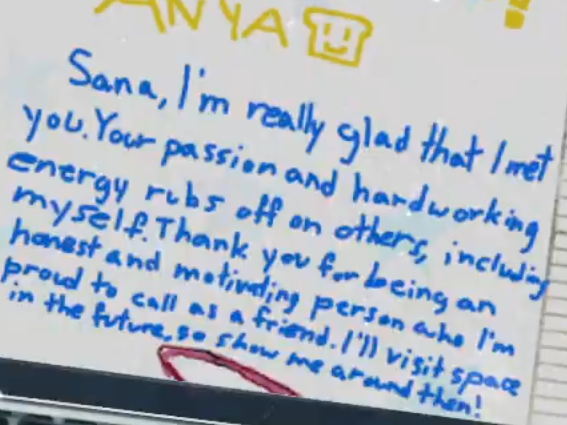 ANYA
Sana, I'm really glad that I met
you. Your passion and hardworking
energy rubs off on others, including
myself. Thank you for being an
honest and motivating person who I'm
proud to call as a friend. I'll visit space
in the future, so show me around then!